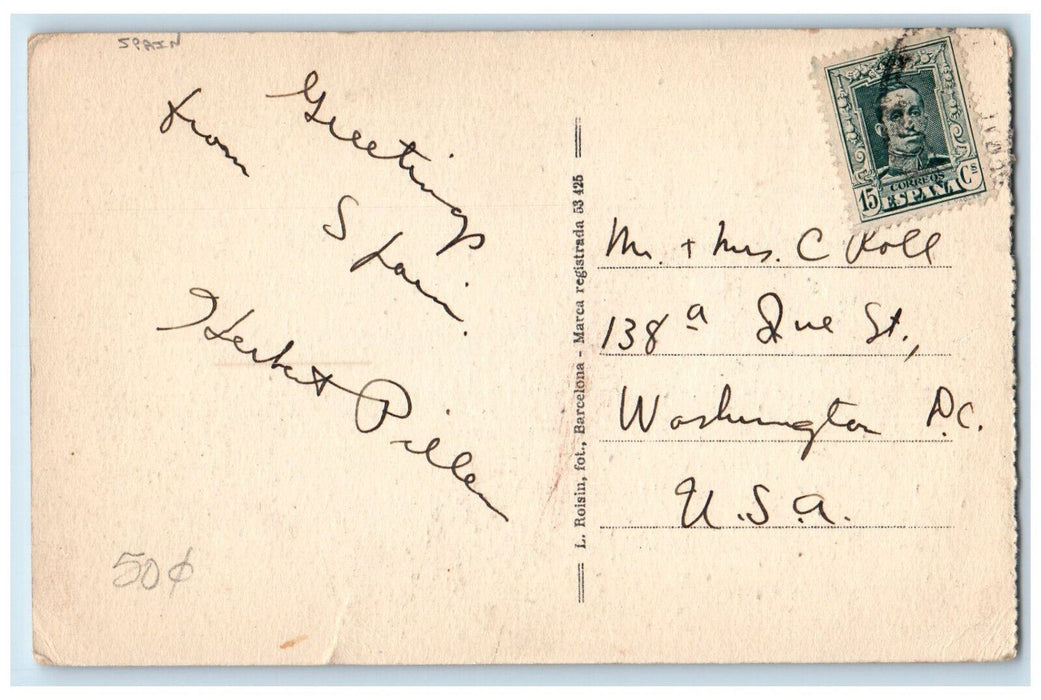 SPAIN
Greetings
from
Spain.
Herbert Pillen
50¢
L. Roisin, fot., Barcelona - Marca registrada 53 425
CORREOS
15 ESPAÑA Cs
Mr. + Mrs. C Koll
138 a Que St.,
Washington D.C.
U.S.A.